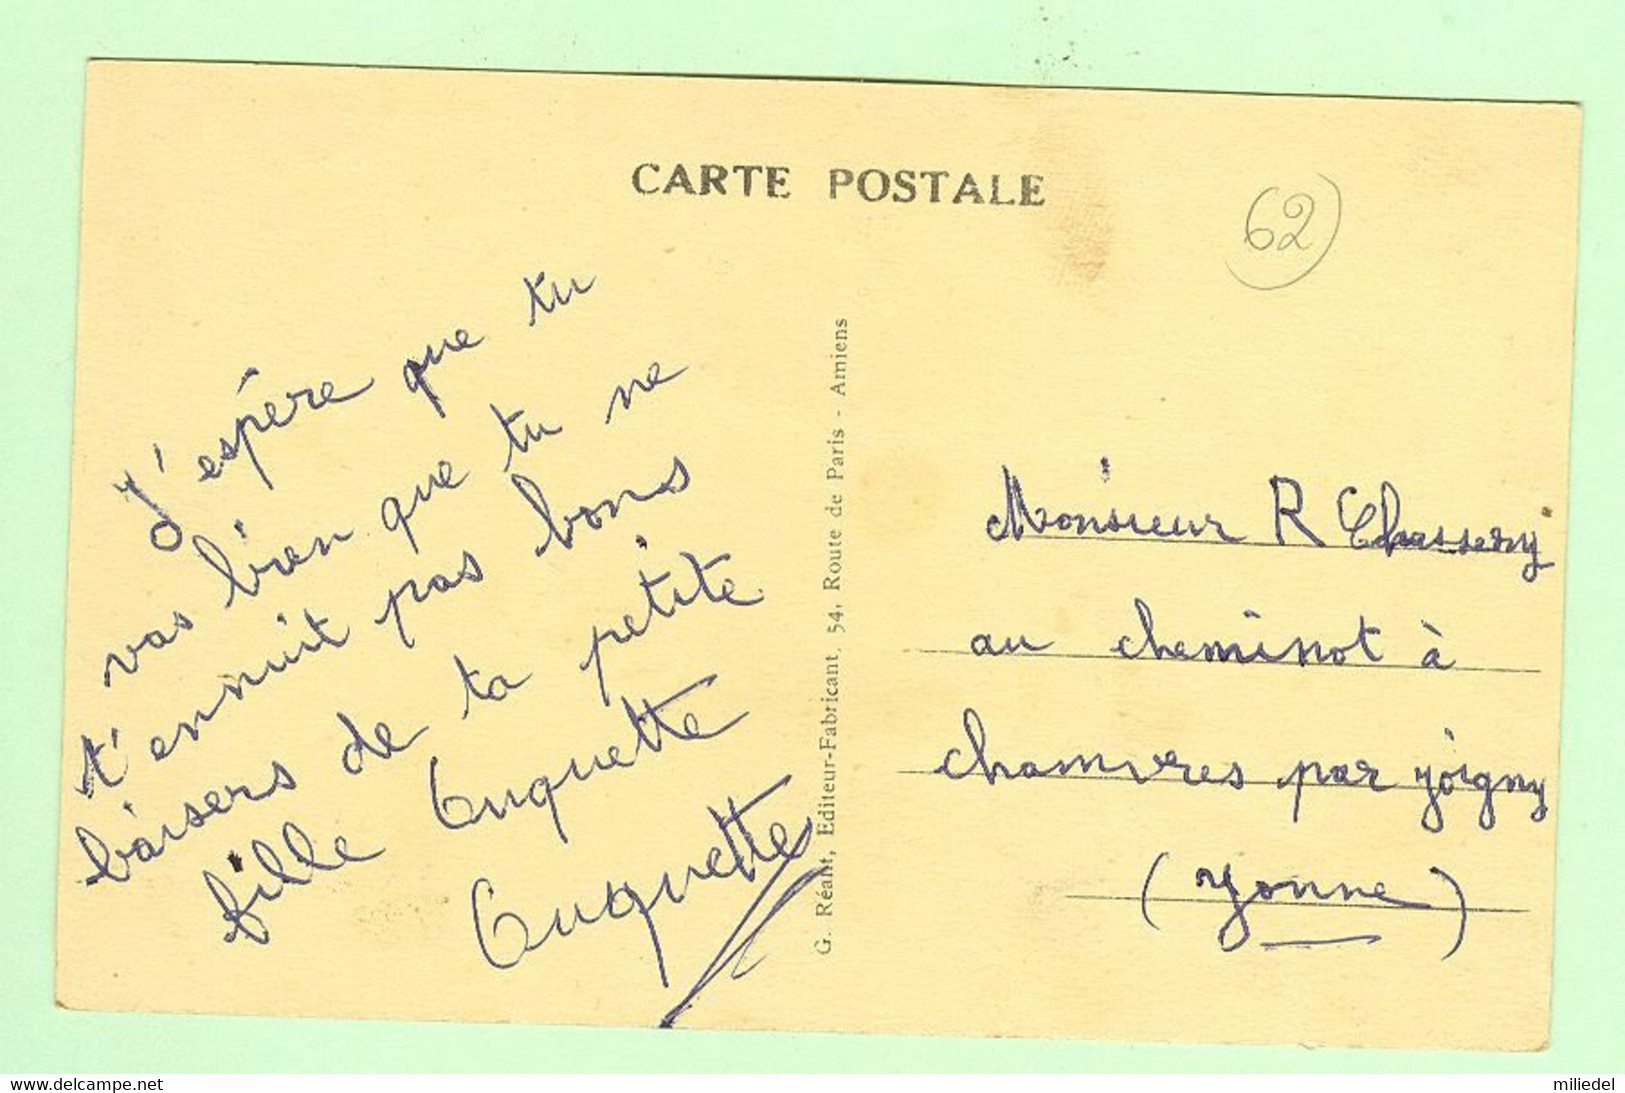 CARTE POSTALE
62
J'espère que tu
vas bien que tu ne
t'ennuit pas bons
baisers de ta petite
fille
G. Réant, Editeur-Fabricant, 54, Route de Paris - Amiens
Monsieur R Chassery
au cheminot à
chamvres par joigny
(Yonne)
www.delcampe.net
miliedel